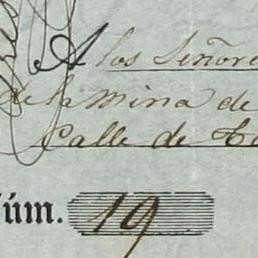 A los Señore
de la Mina de
Calle de
úm. 19